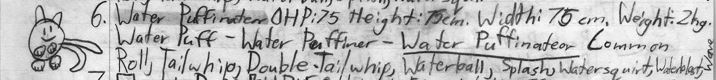 6. Water Puffinateor OHP:75 Height:75cm. Width:75cm. Weight:2kg.
Water Puff - Water Puffiner - Water Puffinateor Common
Roll, Tailwhip, Double-Tailwhip, Waterball, Splash, Watersquirt, Waterblast, Wave
7.